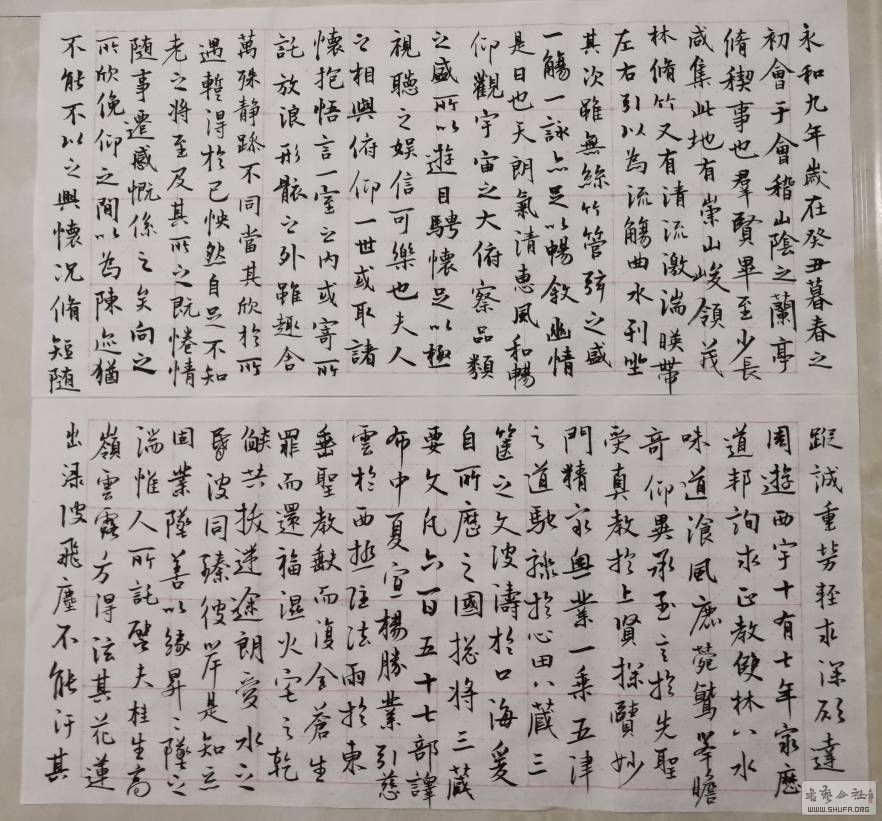 永和九年歲在癸丑暮春之
初會于會稽山陰之蘭亭
脩稧事也羣賢畢至少長
咸集此地有崇山峻領茂
林脩竹又有清流激湍暎帶
左右引以為流觴曲水列坐
其次雖無絲竹管弦之盛
一觴一詠亦足以暢敘幽情
是日也天朗氣清惠風和暢
仰觀宇宙之大俯察品類
之盛所以遊目騁懷足以極
視聽之娛信可樂也夫人
之相與俯仰一世或取諸
懷抱悟言一室之內或寄所
託放浪形骸之外雖趣舍
萬殊静躁不同當其欣於所
遇蹔得於己怏然自足不知
老之將至及其所之既惓情
隨事遷感慨係之矣向之
所欣俛仰之間以為陳迹猶
不能不以之興懷況脩短隨
蹤誠重勞輕求深願達
周遊西宇十有七年窮歷
道邦詢求正教雙林八水
味道飡風鹿菀鷲峯瞻
奇仰異承至言於先聖
受真教於上賢探賾妙
門精窮奧業一乘五津
之道馳驟於心田八藏三
篋之文波濤於口海爰
自所歷之國揔將三藏
要文凡六百五十七部譯
布中夏宣楊勝業引慈
雲於西極注法雨於東
垂聖教缺而復全蒼生
罪而還福濕火宅之乾
焰共拔迷途朗愛水之
昏波同臻彼岸是知惡
因業墜善以緣昇昇墜之
端惟人所託譬夫桂生高
嶺雲露方得泫其花蓮
出淥波飛塵不能汙其
WWW.SHUFA.ORG